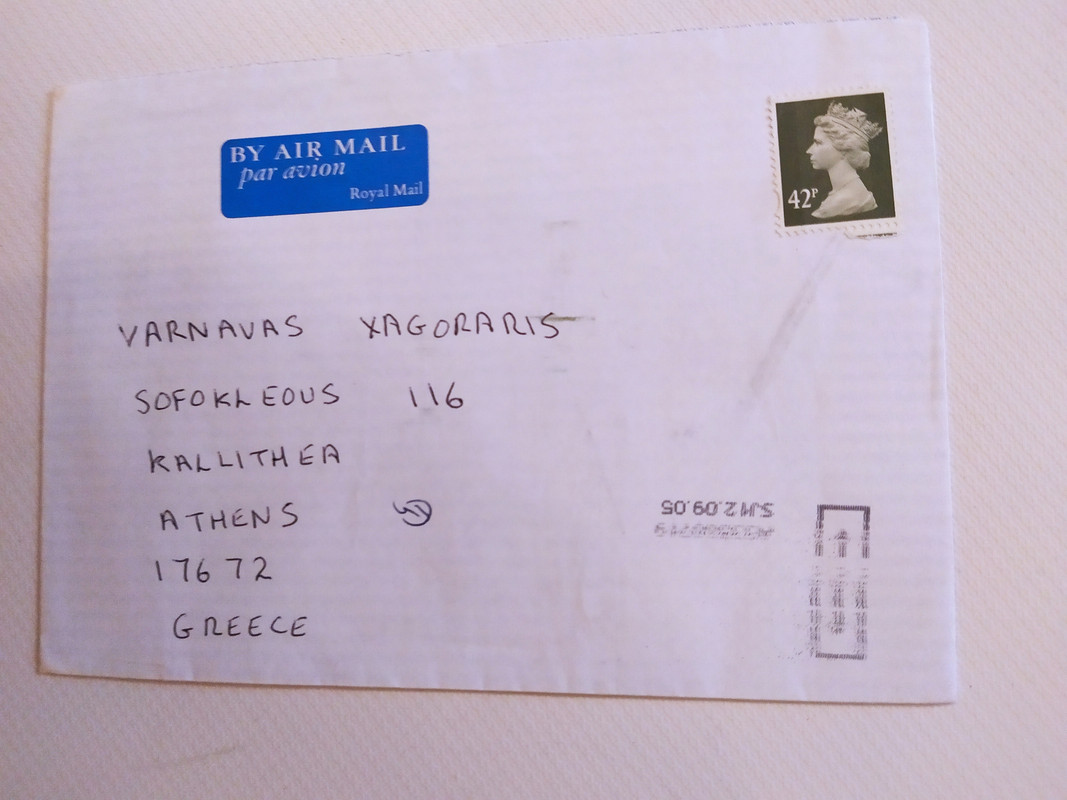 BY AIR MAIL
par avion
Royal Mail
42P
VARNAVAS XAGORARIS
SOFOKLEOUS 116
KALLITHEA
ATHENS
17672
GREECE
12.09.05